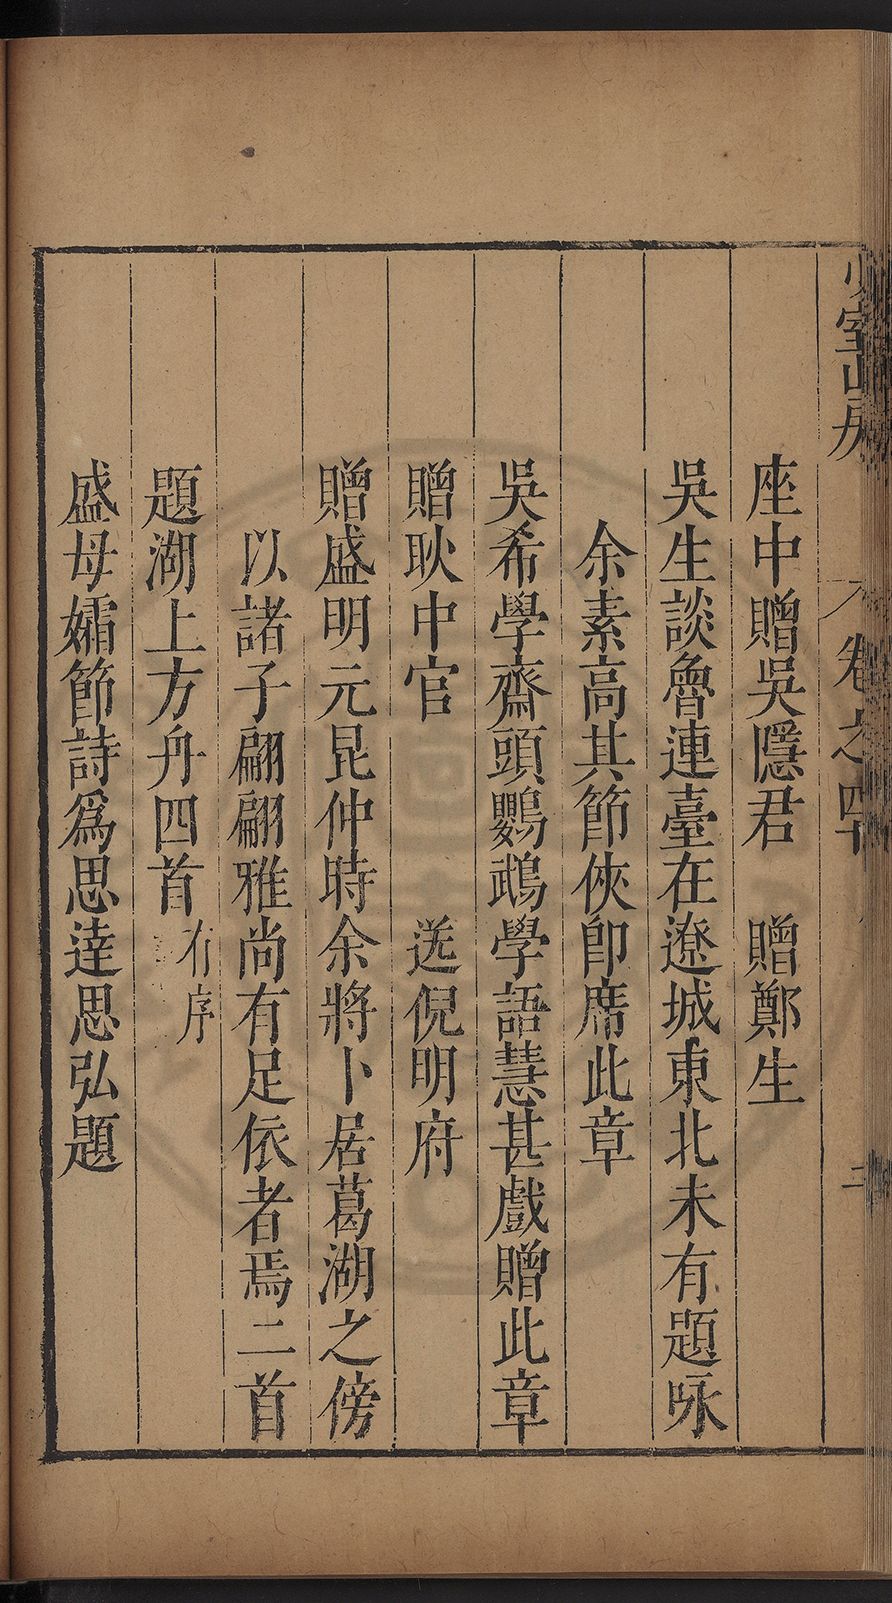 少室山房
卷之四十
二
座中贈吳隱君　贈鄭生
吳生談魯連臺在遼城東北未有題咏
余素高其節俠卽席此章
吳希學齋頭鸚鵡學語慧甚戲贈此章
贈耿中官　送倪明府
贈盛明元昆仲時余將卜居葛湖之傍
以諸子翩翩雅尚有足依者焉二首
題湖上方舟四首有序
盛母孀節詩爲思達思弘題